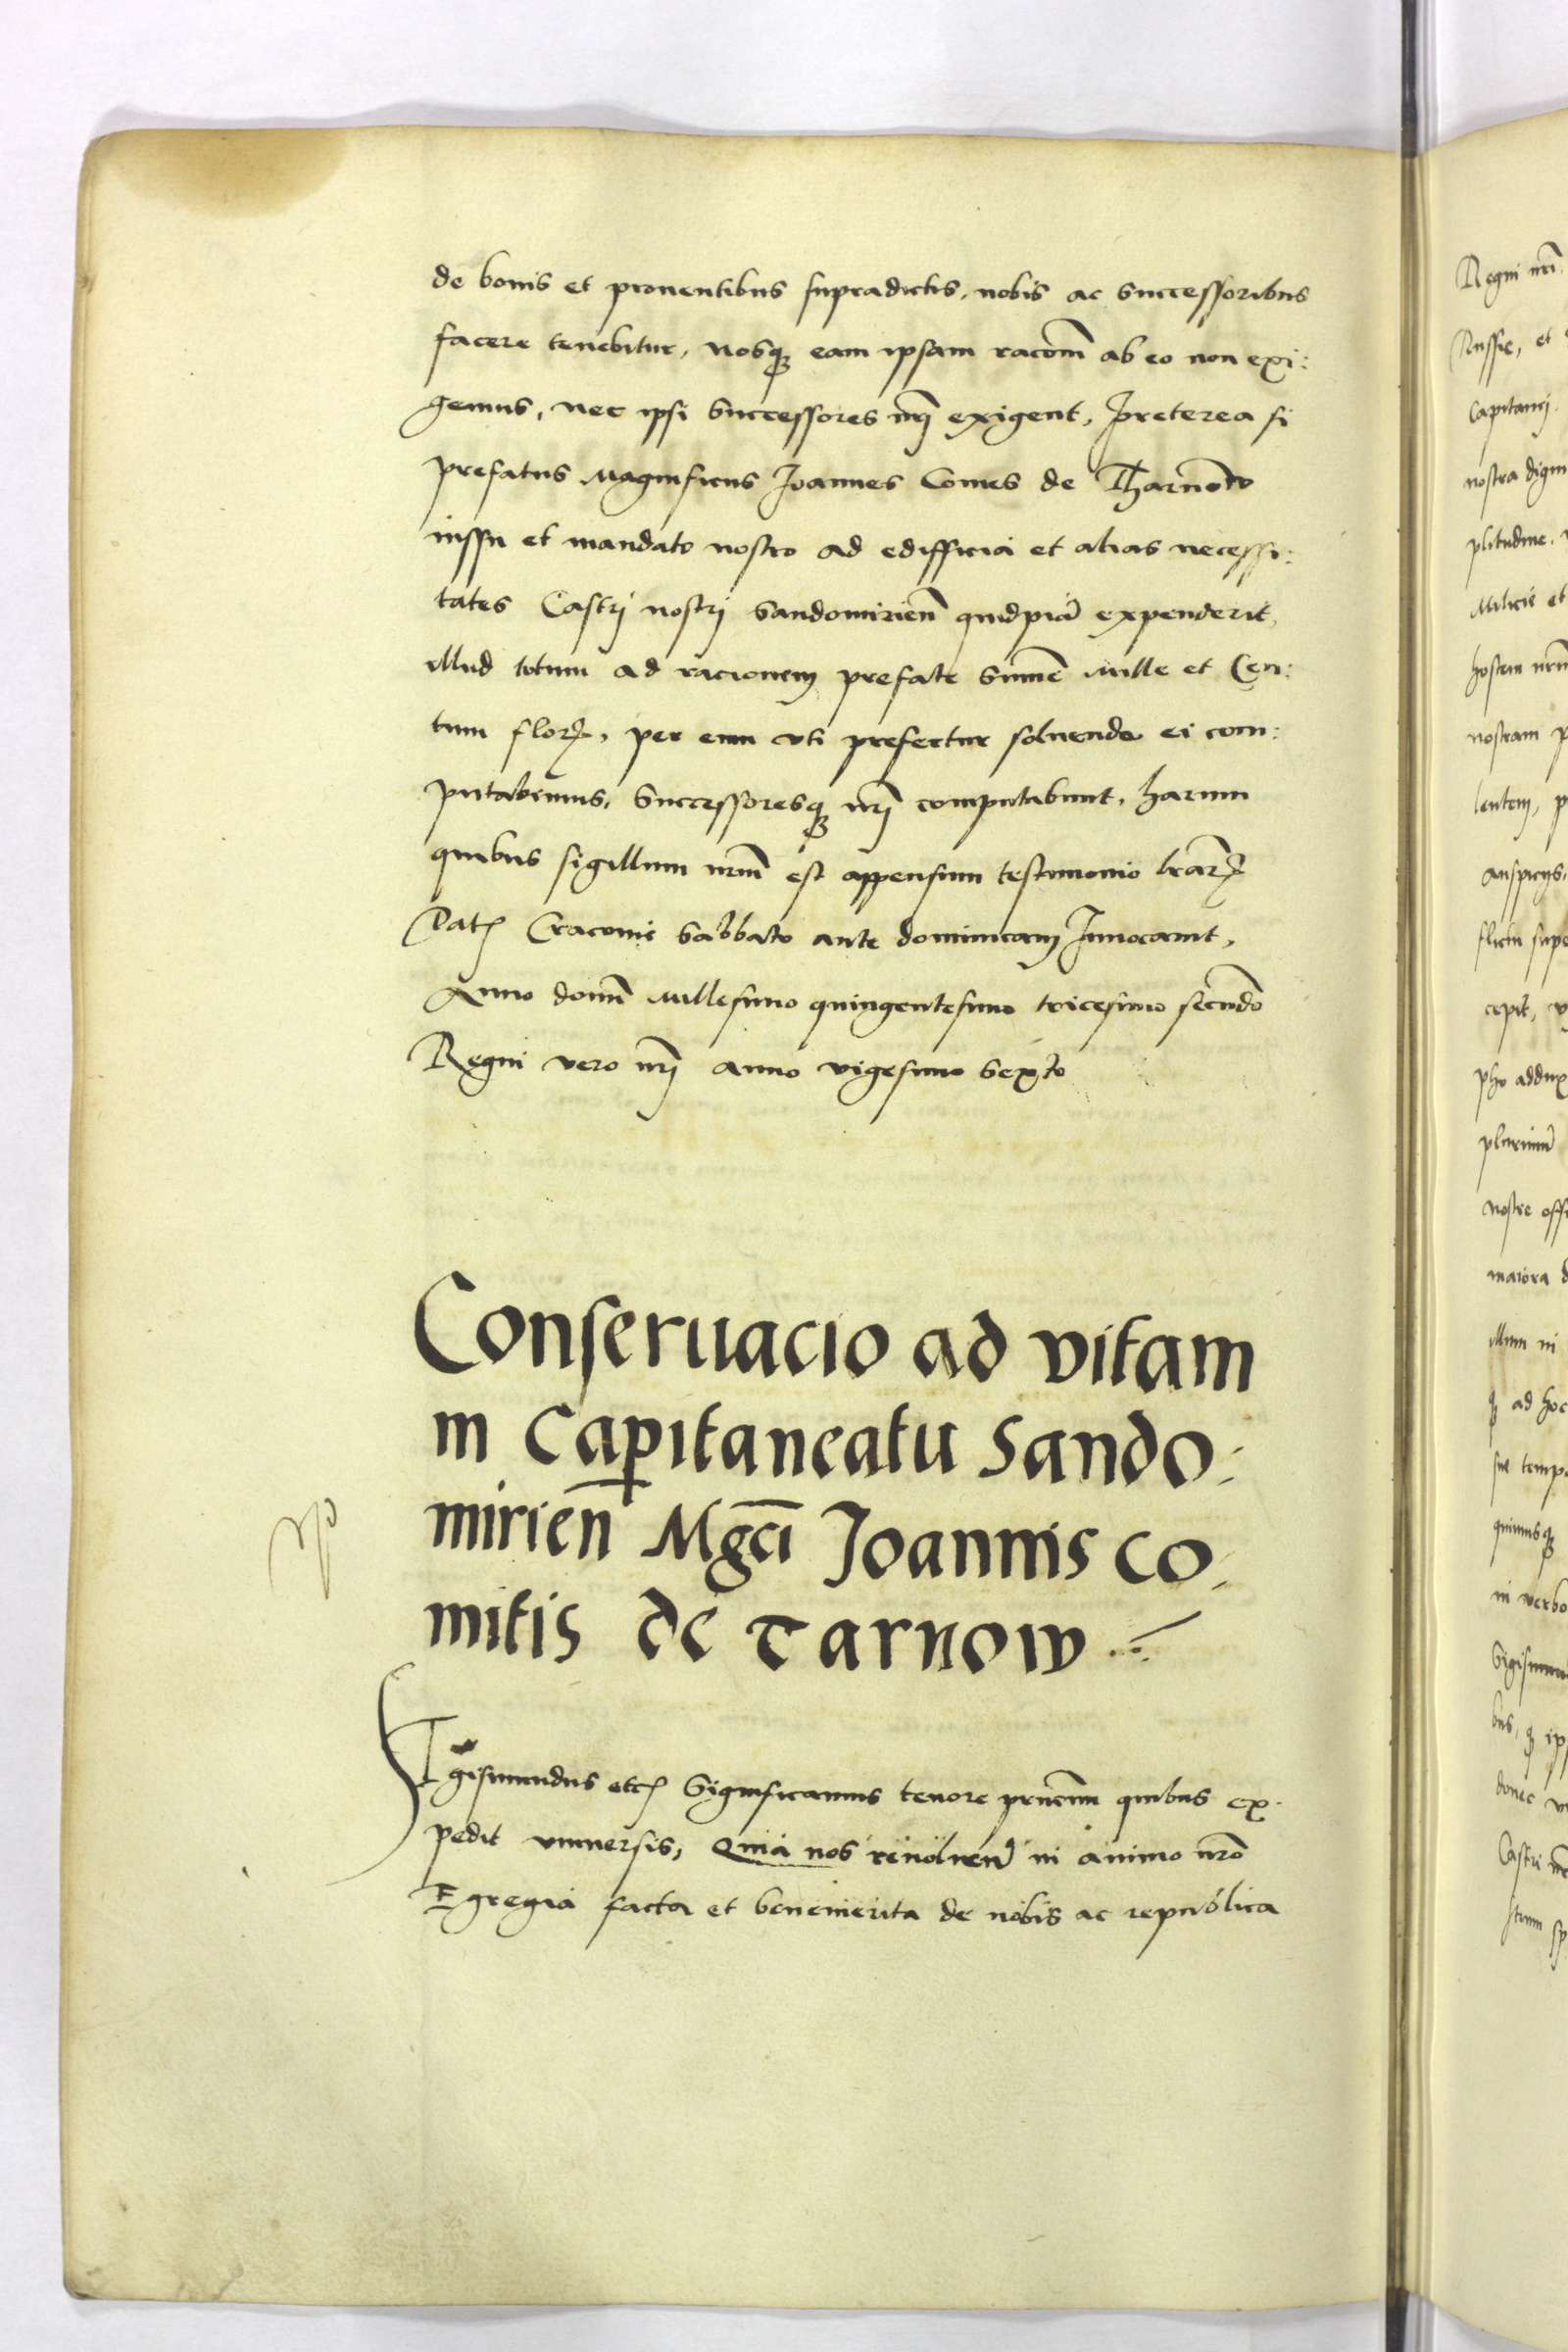 de bonis et prouentibus supradictis, nobis ac successoribus
facere tenebitur, nosq3 eam ipsam racom̄ ab eo non exi:
gemus, nec ipsi successores nr̄j exigent, preterea si
prefatus Magnificus Joannes Comes de Tharnow
iussu et mandato nostro ad edifficia et alias necessi:
tates Castrj nostrj Sandomirien̄ quidpiā expenderit,
illud totum ad racionem prefate sum̄e Mille et Cen:
tum florꝝ, per eum vti prefertur soluende ei com:
putabimus, Successoresq3 nr̄j computabunt, harum
quibus sigillum nrm̄ est appensum testimonio lr̄arꝝ
Datꝭ Cracouie Sabbato ante dominicam Inuocauit,
Anno domī Millesimo quingentesimo tricesimo secundo
Regni vero nr̄j anno vigesimo Sexto
Conseruacio ad vitam
in Capitaneatu Sando:
mirien̄ Mgci̅ Joannis co:
mitis de Tarnow
SIgismundus etcꝭ Significamus tenore pn̄cium quibus ex:
pedit vniuersis, Quia nos reuoluen̄ in animo nr̄o
Egregia facta et benemerita de nobis ac republica
Regni nr̄i
Russie, et
Capitanej
nostra dign
plitudine,
Milicie et
hostem nrm̄
nostram p
lentem, p
auspicijs,
flictu supe
cepit, v
pho addux
plurimū
nostre offi
maiora d
illum in
q3 ad hoc
sue tempo
quimusq3
in verbo
Sigismun
bus, q3 ip
donec vi
Castri nr̄